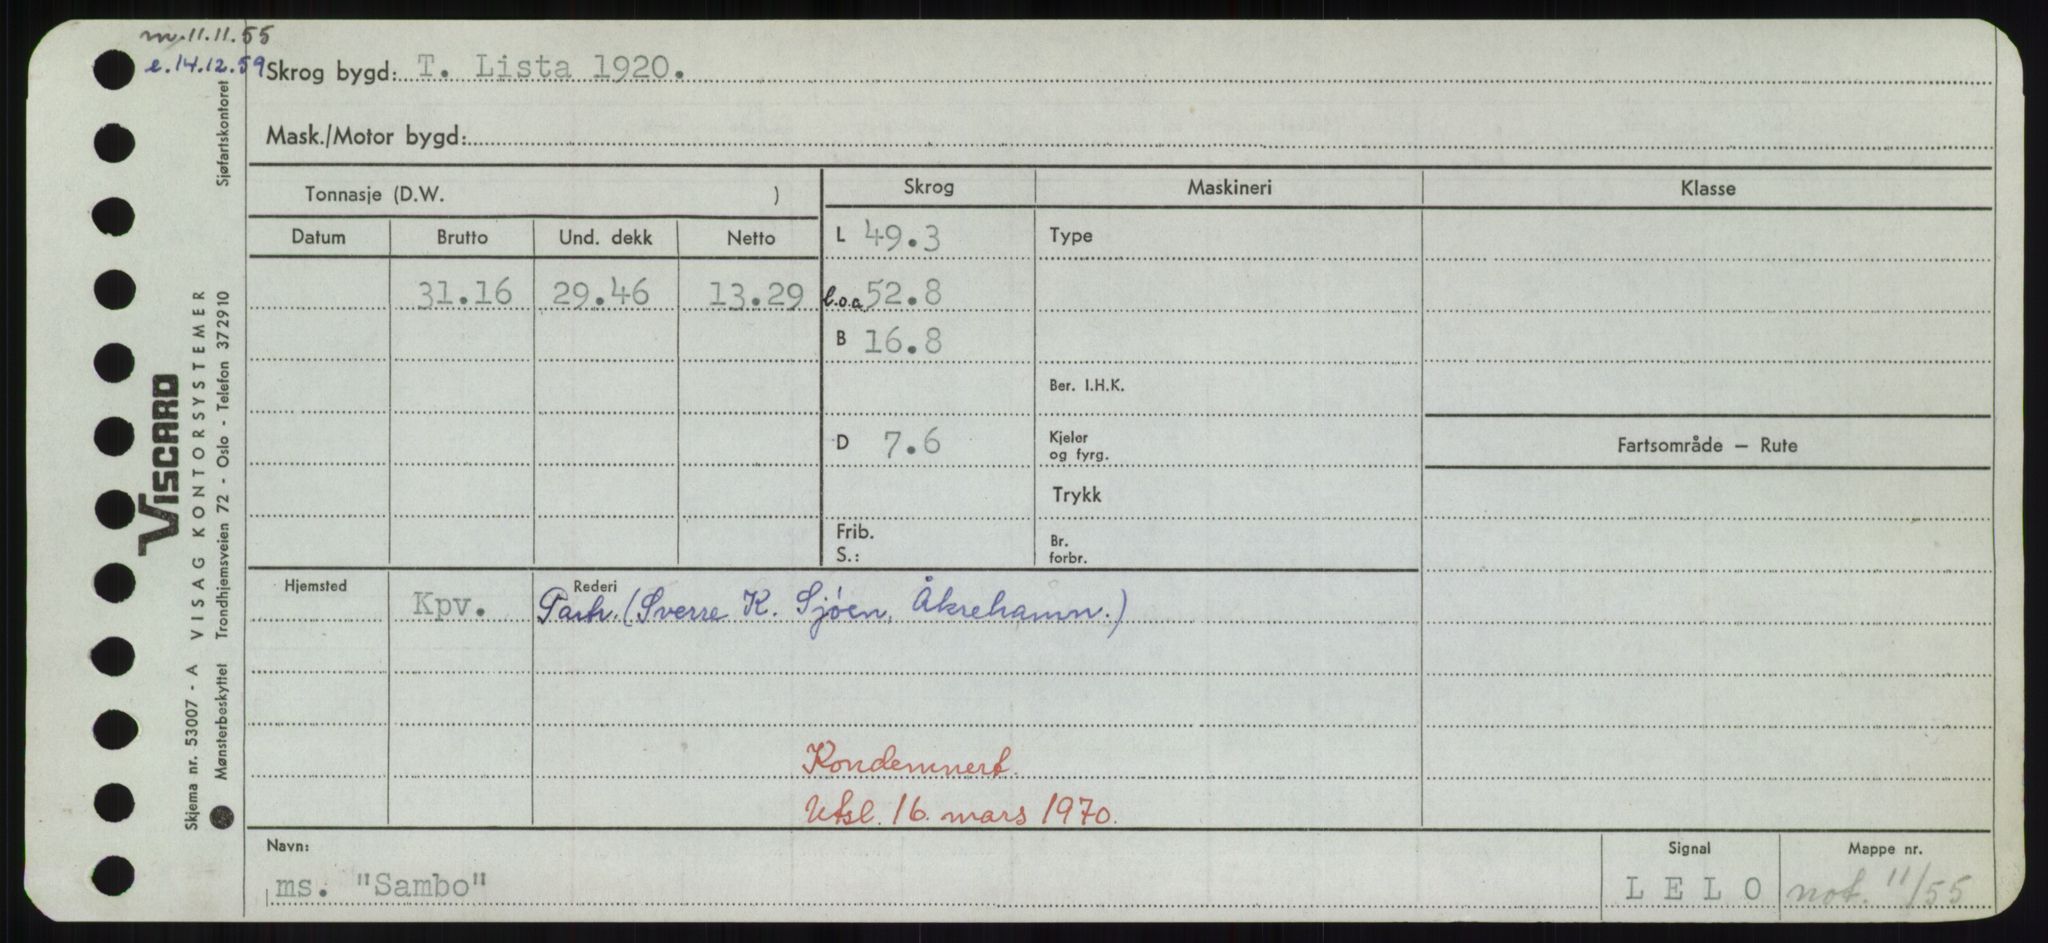 m. 11.11.55
e. 14.12.59
Skrog bygd: T. Lista 1920.
Mask./Motor bygd:
Tonnasje (D.W. )
Skrog Maskineri Klasse
Datum Brutto Und. dekk Netto
L 49.3 Type
31.16 29.46 13.29 l.o.a 52.8
B 16.8
Ber. I.H.K.
D 7.6 Kjeler
og fyrg.
Fartsområde — Rute
Trykk
Frib.
S.:
Br.
forbr.
Hjemsted Kpv. Rederi
Partr. (Sverre K. Sjøen, Åkrehamn.)
Kondemnert.
Utsl. 16. mars 1970.
Navn: Signal Mappe nr.
ms. "Sambo" L E L O not. 11/55
VISCARD
Skjema nr. 53007 - A VISAG KONTORSYSTEMER
Mønsterbeskyttet Trondhjemsveien 72 - Oslo - Telefon 372910 Sjøfartskontoret